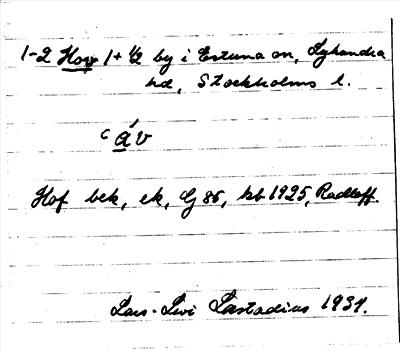 1-2 Hov 1+½ by i Estuna sn, Lyhundra
hd, Stockholms l.
c áv
Hof bek, ek, Gj 86, kb 1925, Radloff.
Lars-Levi Læstadius 1931.